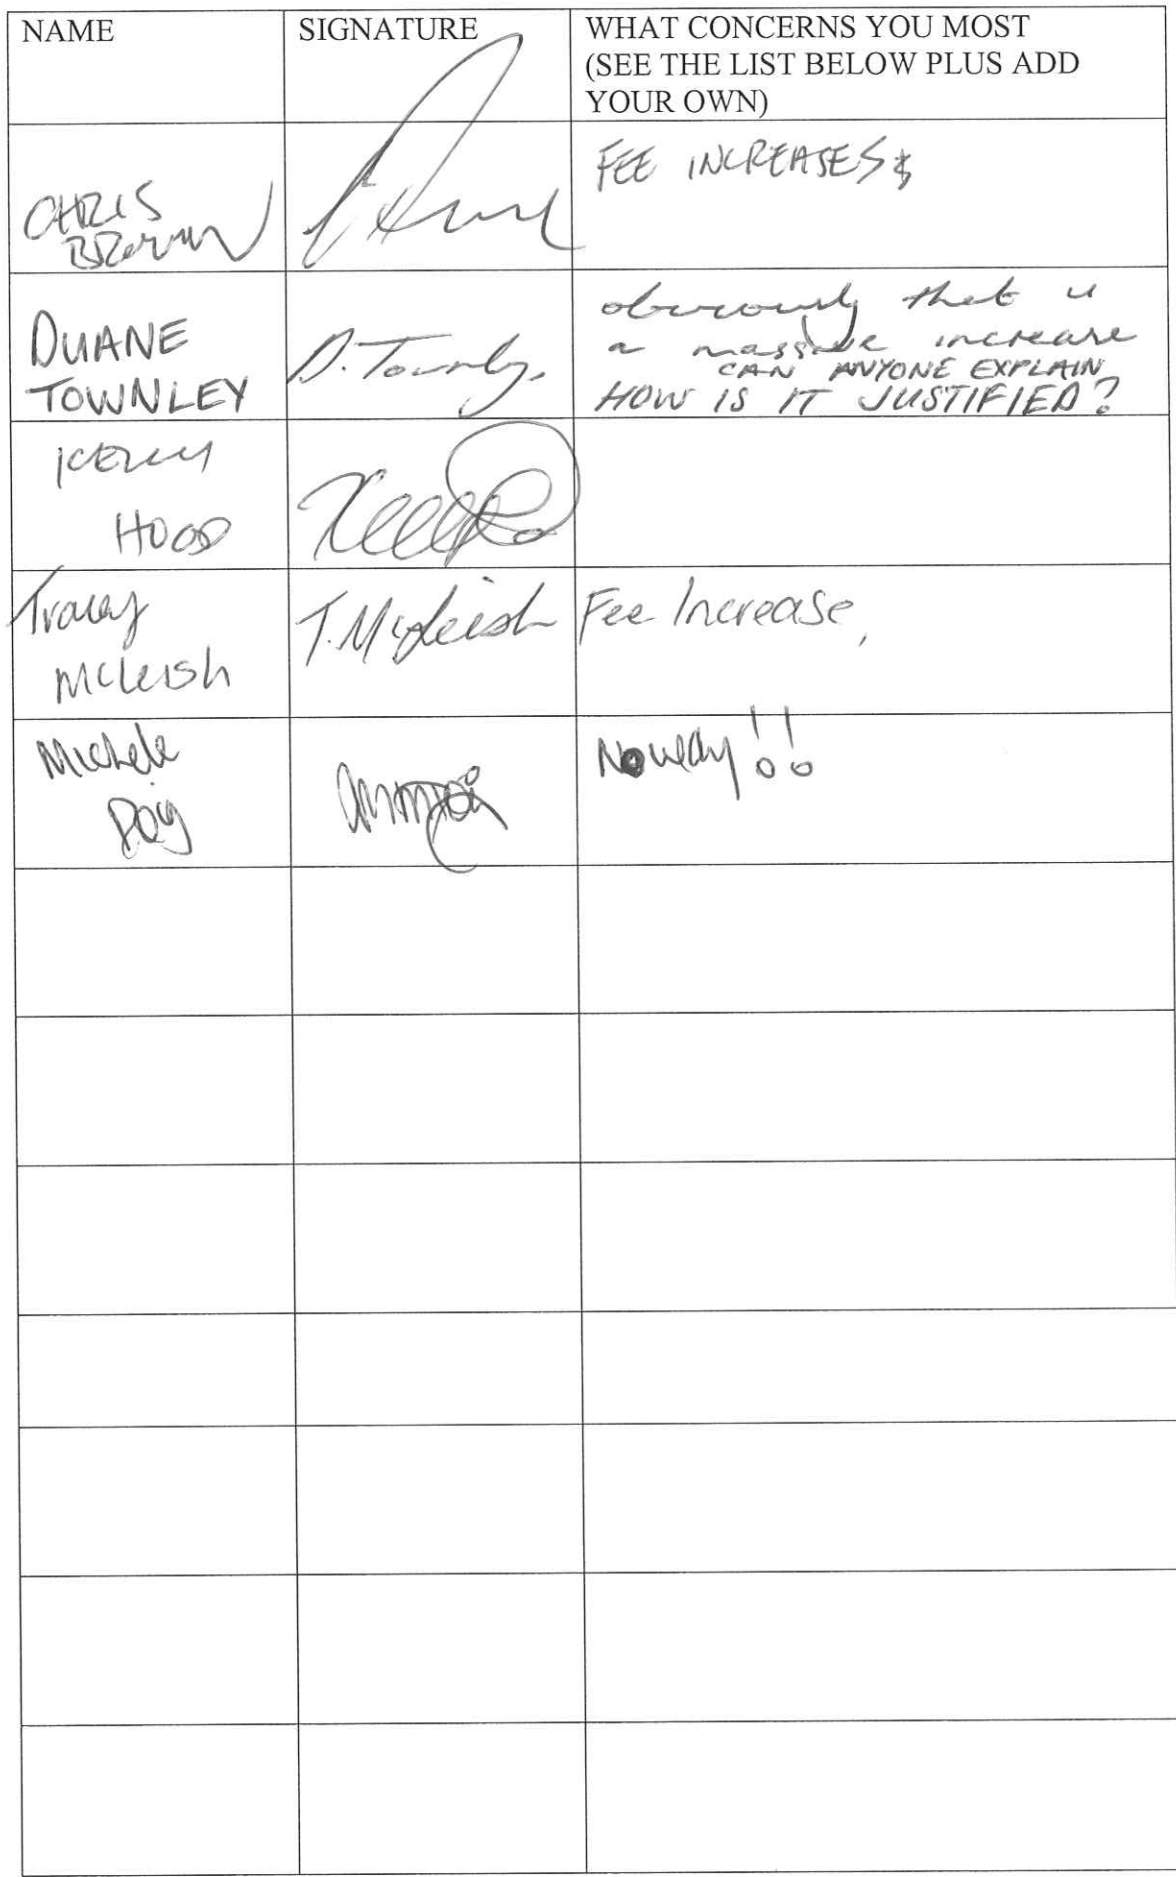 NAME
SIGNATURE
WHAT CONCERNS YOU MOST
(SEE THE LIST BELOW PLUS ADD
YOUR OWN)
CHRIS
BROWN
FEE INCREASES $
DUANE
TOWNLEY
D. Townley.
obviously that is
a massive increase
CAN ANYONE EXPLAIN
HOW IS IT JUSTIFIED?
KELLY
HOOD
Tracey
McLeish
T. McLeish
Fee Increase,
Michele
Doig
No way!!